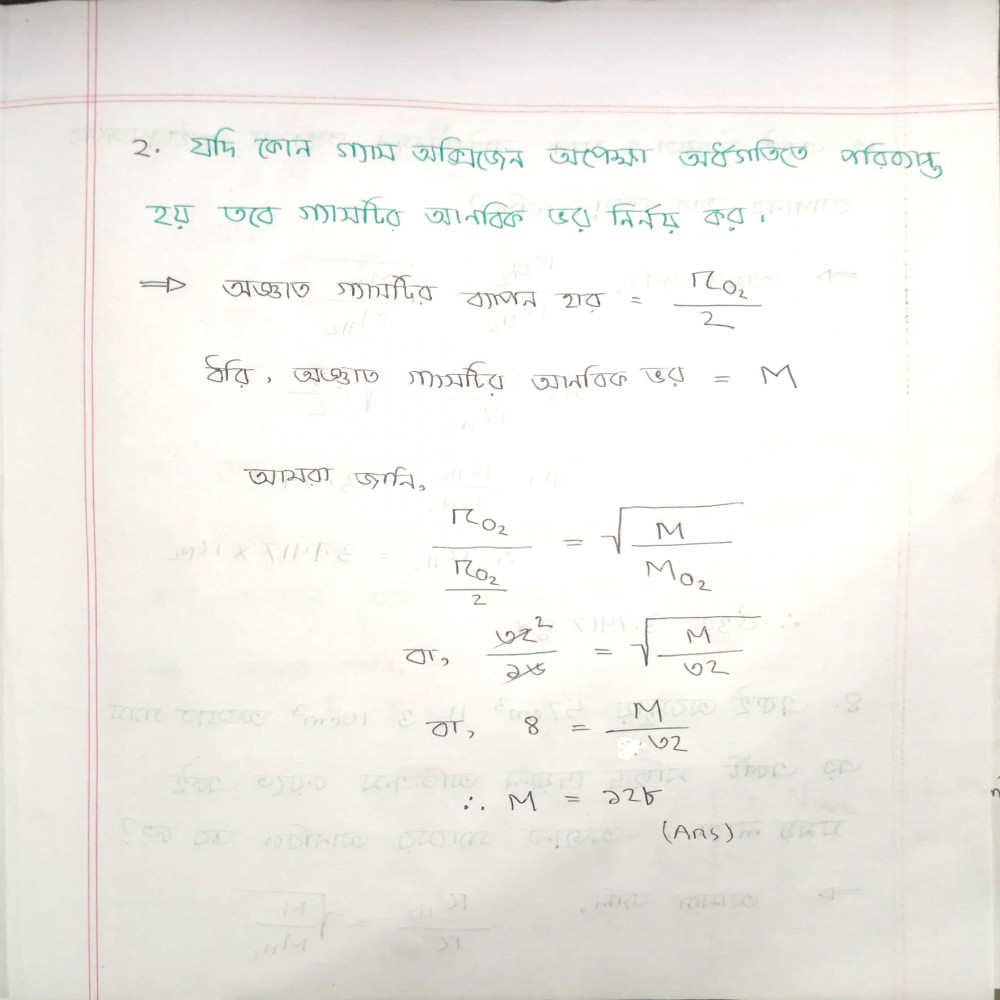 ২. যদি কোন গ্যাস অক্সিজেন অপেক্ষা অর্ধগতিতে পরিব্যপ্ত
হয় তবে গ্যাসটির আনবিক ভর নির্নয় কর।
⇒ অজ্ঞাত গ্যাসটির ব্যাপন হার = r_O₂ / 2
ধরি, অজ্ঞাত গ্যাসটির আনবিক ভর = M
আমরা জানি,
r_O₂ / (r_O₂ / 2) = √(M / M_O₂)
বা, ৩২² / ১৬ = √(M / ৩২)
বা, ৪ = M / ৩২
∴ M = ১২৮
(Ans)